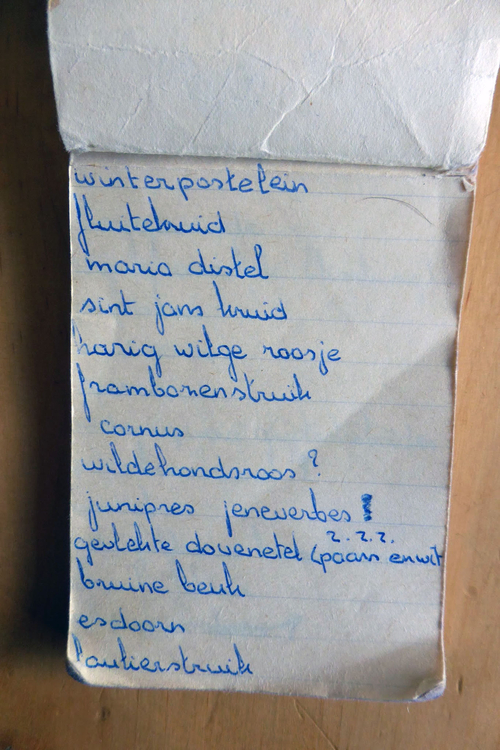 winterpostelein
fluitekruid
maria distel
sint jans kruid
harig wilge roosje
frambozenstruik
cornus
wildehondsroos ?
junipres jeneverbes !
? . ? . ?.
gevlekte dovenetel (paars en wit
bruine beuk
esdoorn
laukierstruik